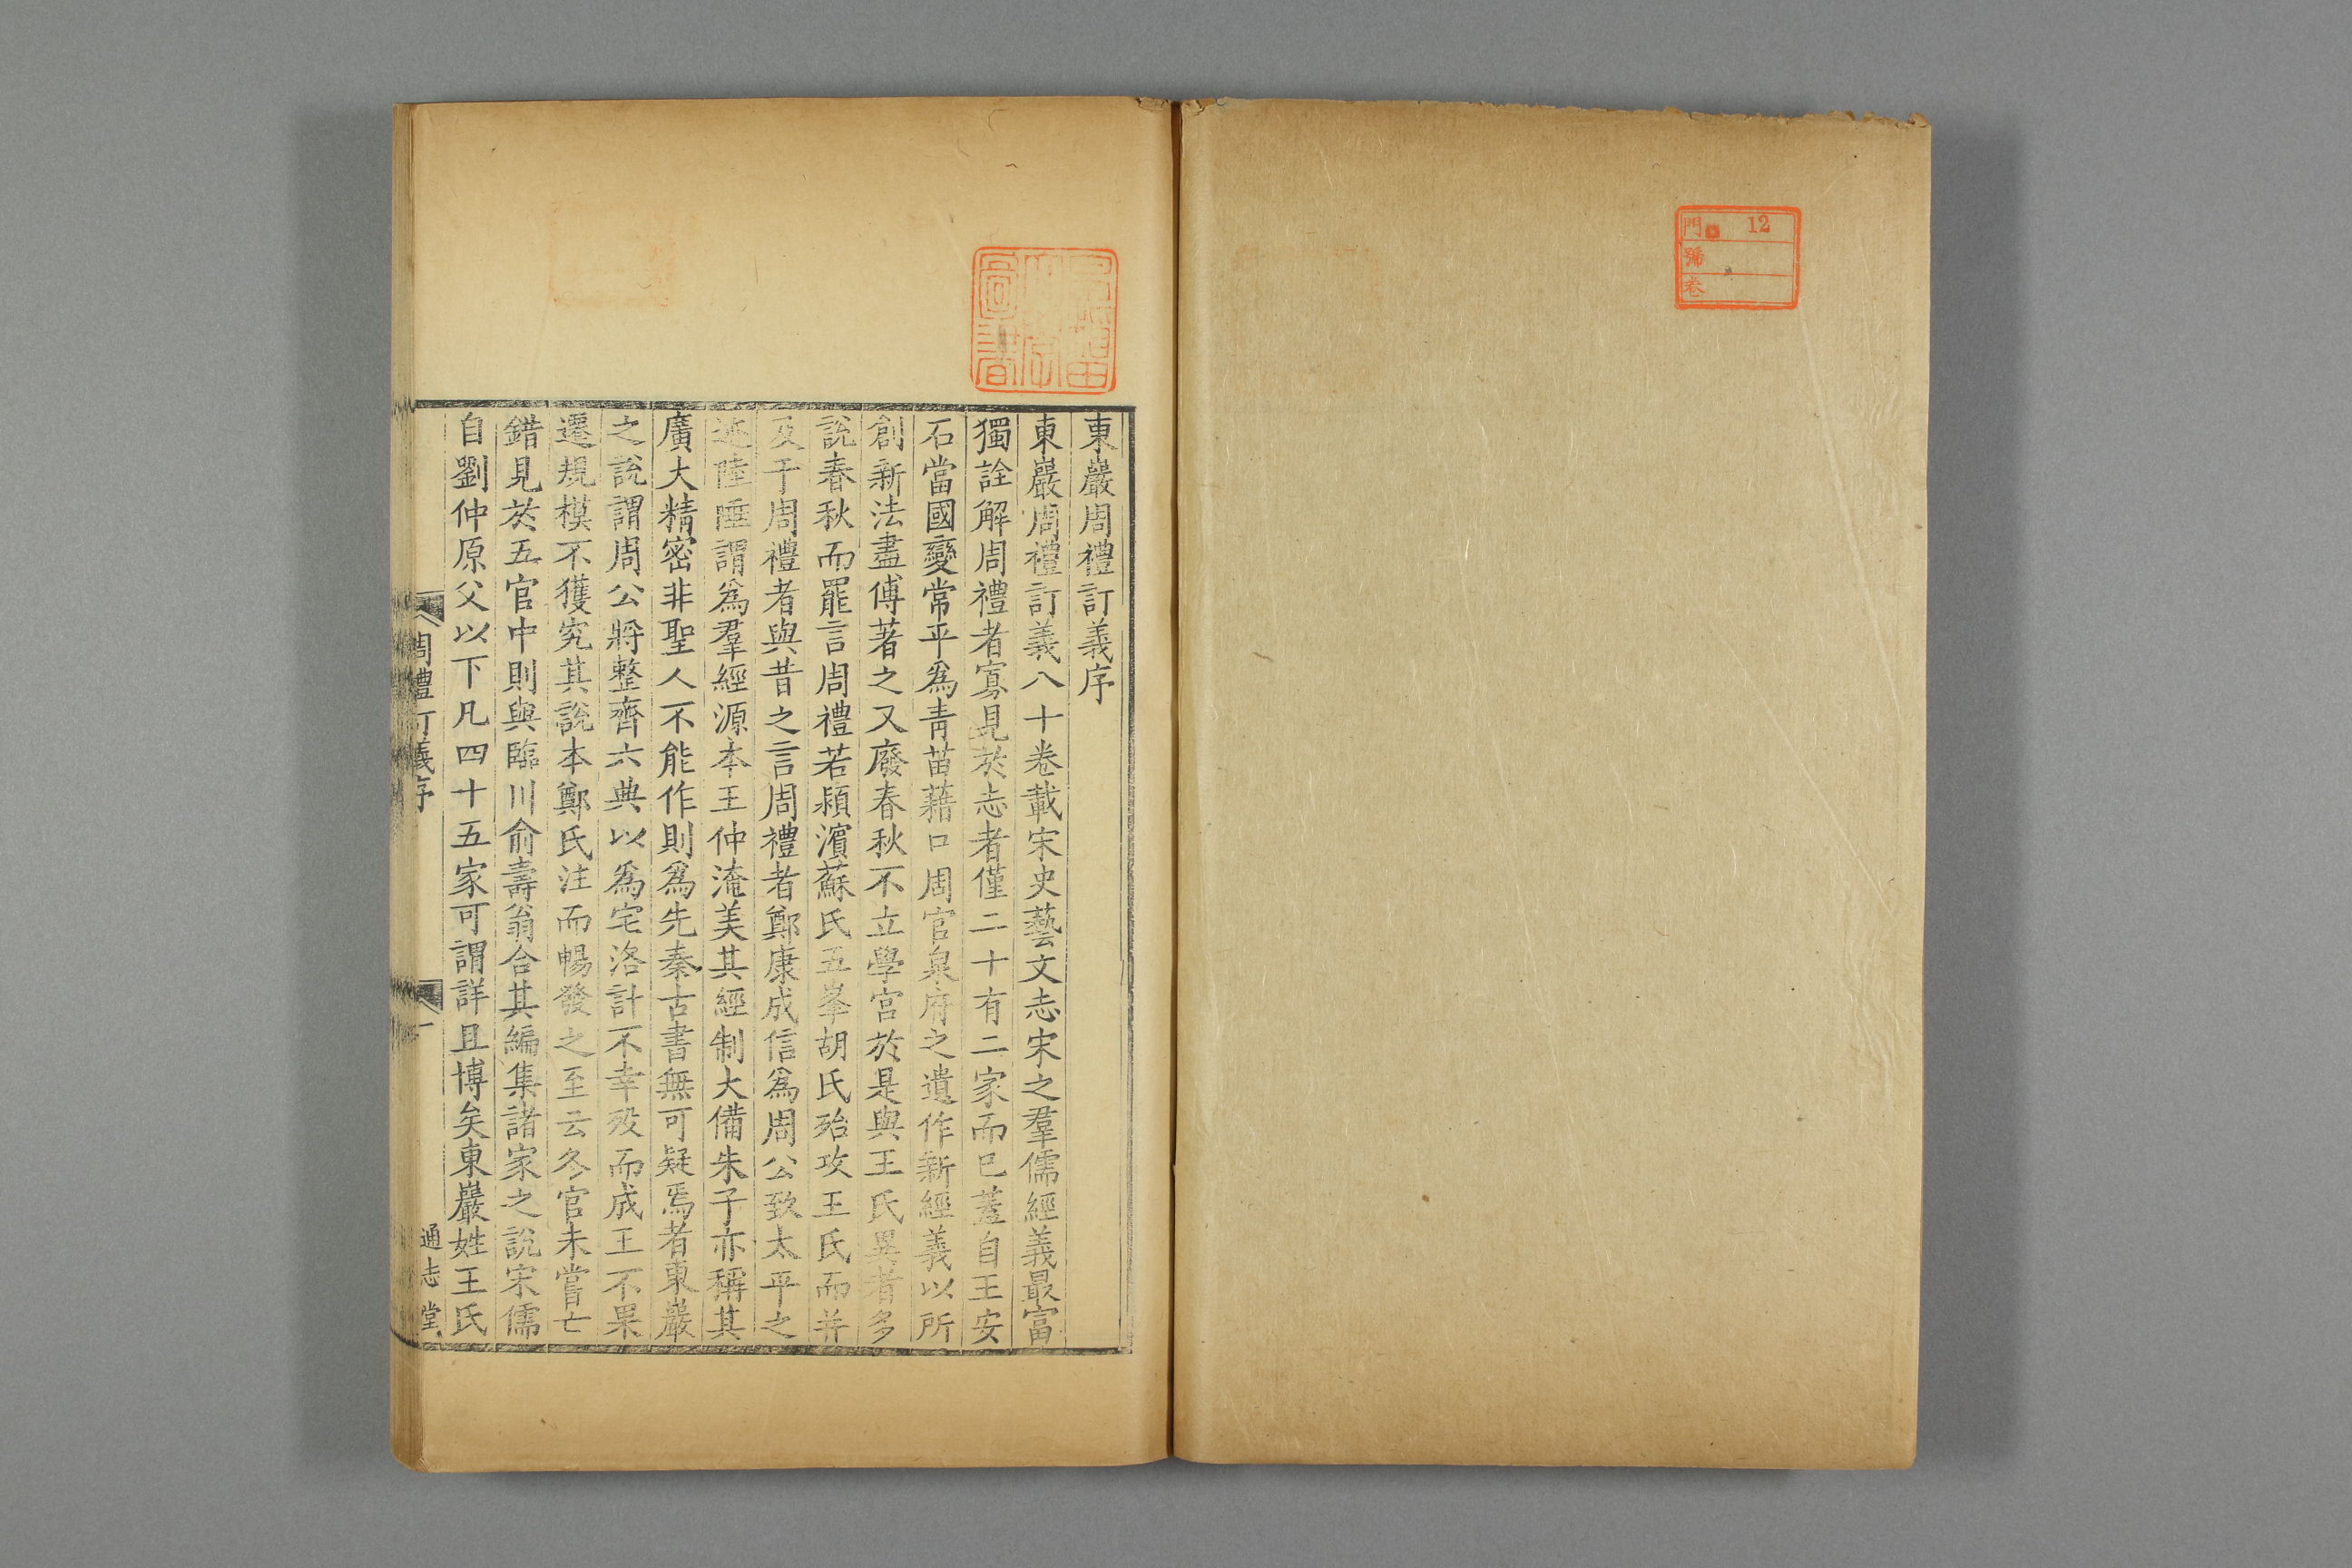 門 12
號
卷
東巖周禮訂義序
東巖周禮訂義八十卷載宋史藝文志宋之羣儒經義最富
獨詮解周禮者寡見於志者僅二十有二家而已蓋自王安
石當國變常平爲青苗藉口周官泉府之遺作新經義以所
創新法盡傅著之又廢春秋不立學宮於是與王氏異者多
說春秋而罷言周禮若潁濱蘇氏五峯胡氏殆攻王氏而并
及于周禮者與昔之言周禮者鄭康成信爲周公致太平之
迹陸陲謂爲羣經源本王仲淹美其經制大備朱子亦稱其
廣大精密非聖人不能作則爲先秦古書無可疑焉者東巖
之說謂周公將整齊六典以爲宅洛計不幸歿而成王不果
遷規模不獲究其說本鄭氏注而暢發之至云冬官未嘗亡
錯見於五官中則與臨川俞壽翁合其編集諸家之說宋儒
自劉仲原父以下凡四十五家可謂詳且博矣東巖姓王氏
周禮訂義序 一 通志堂